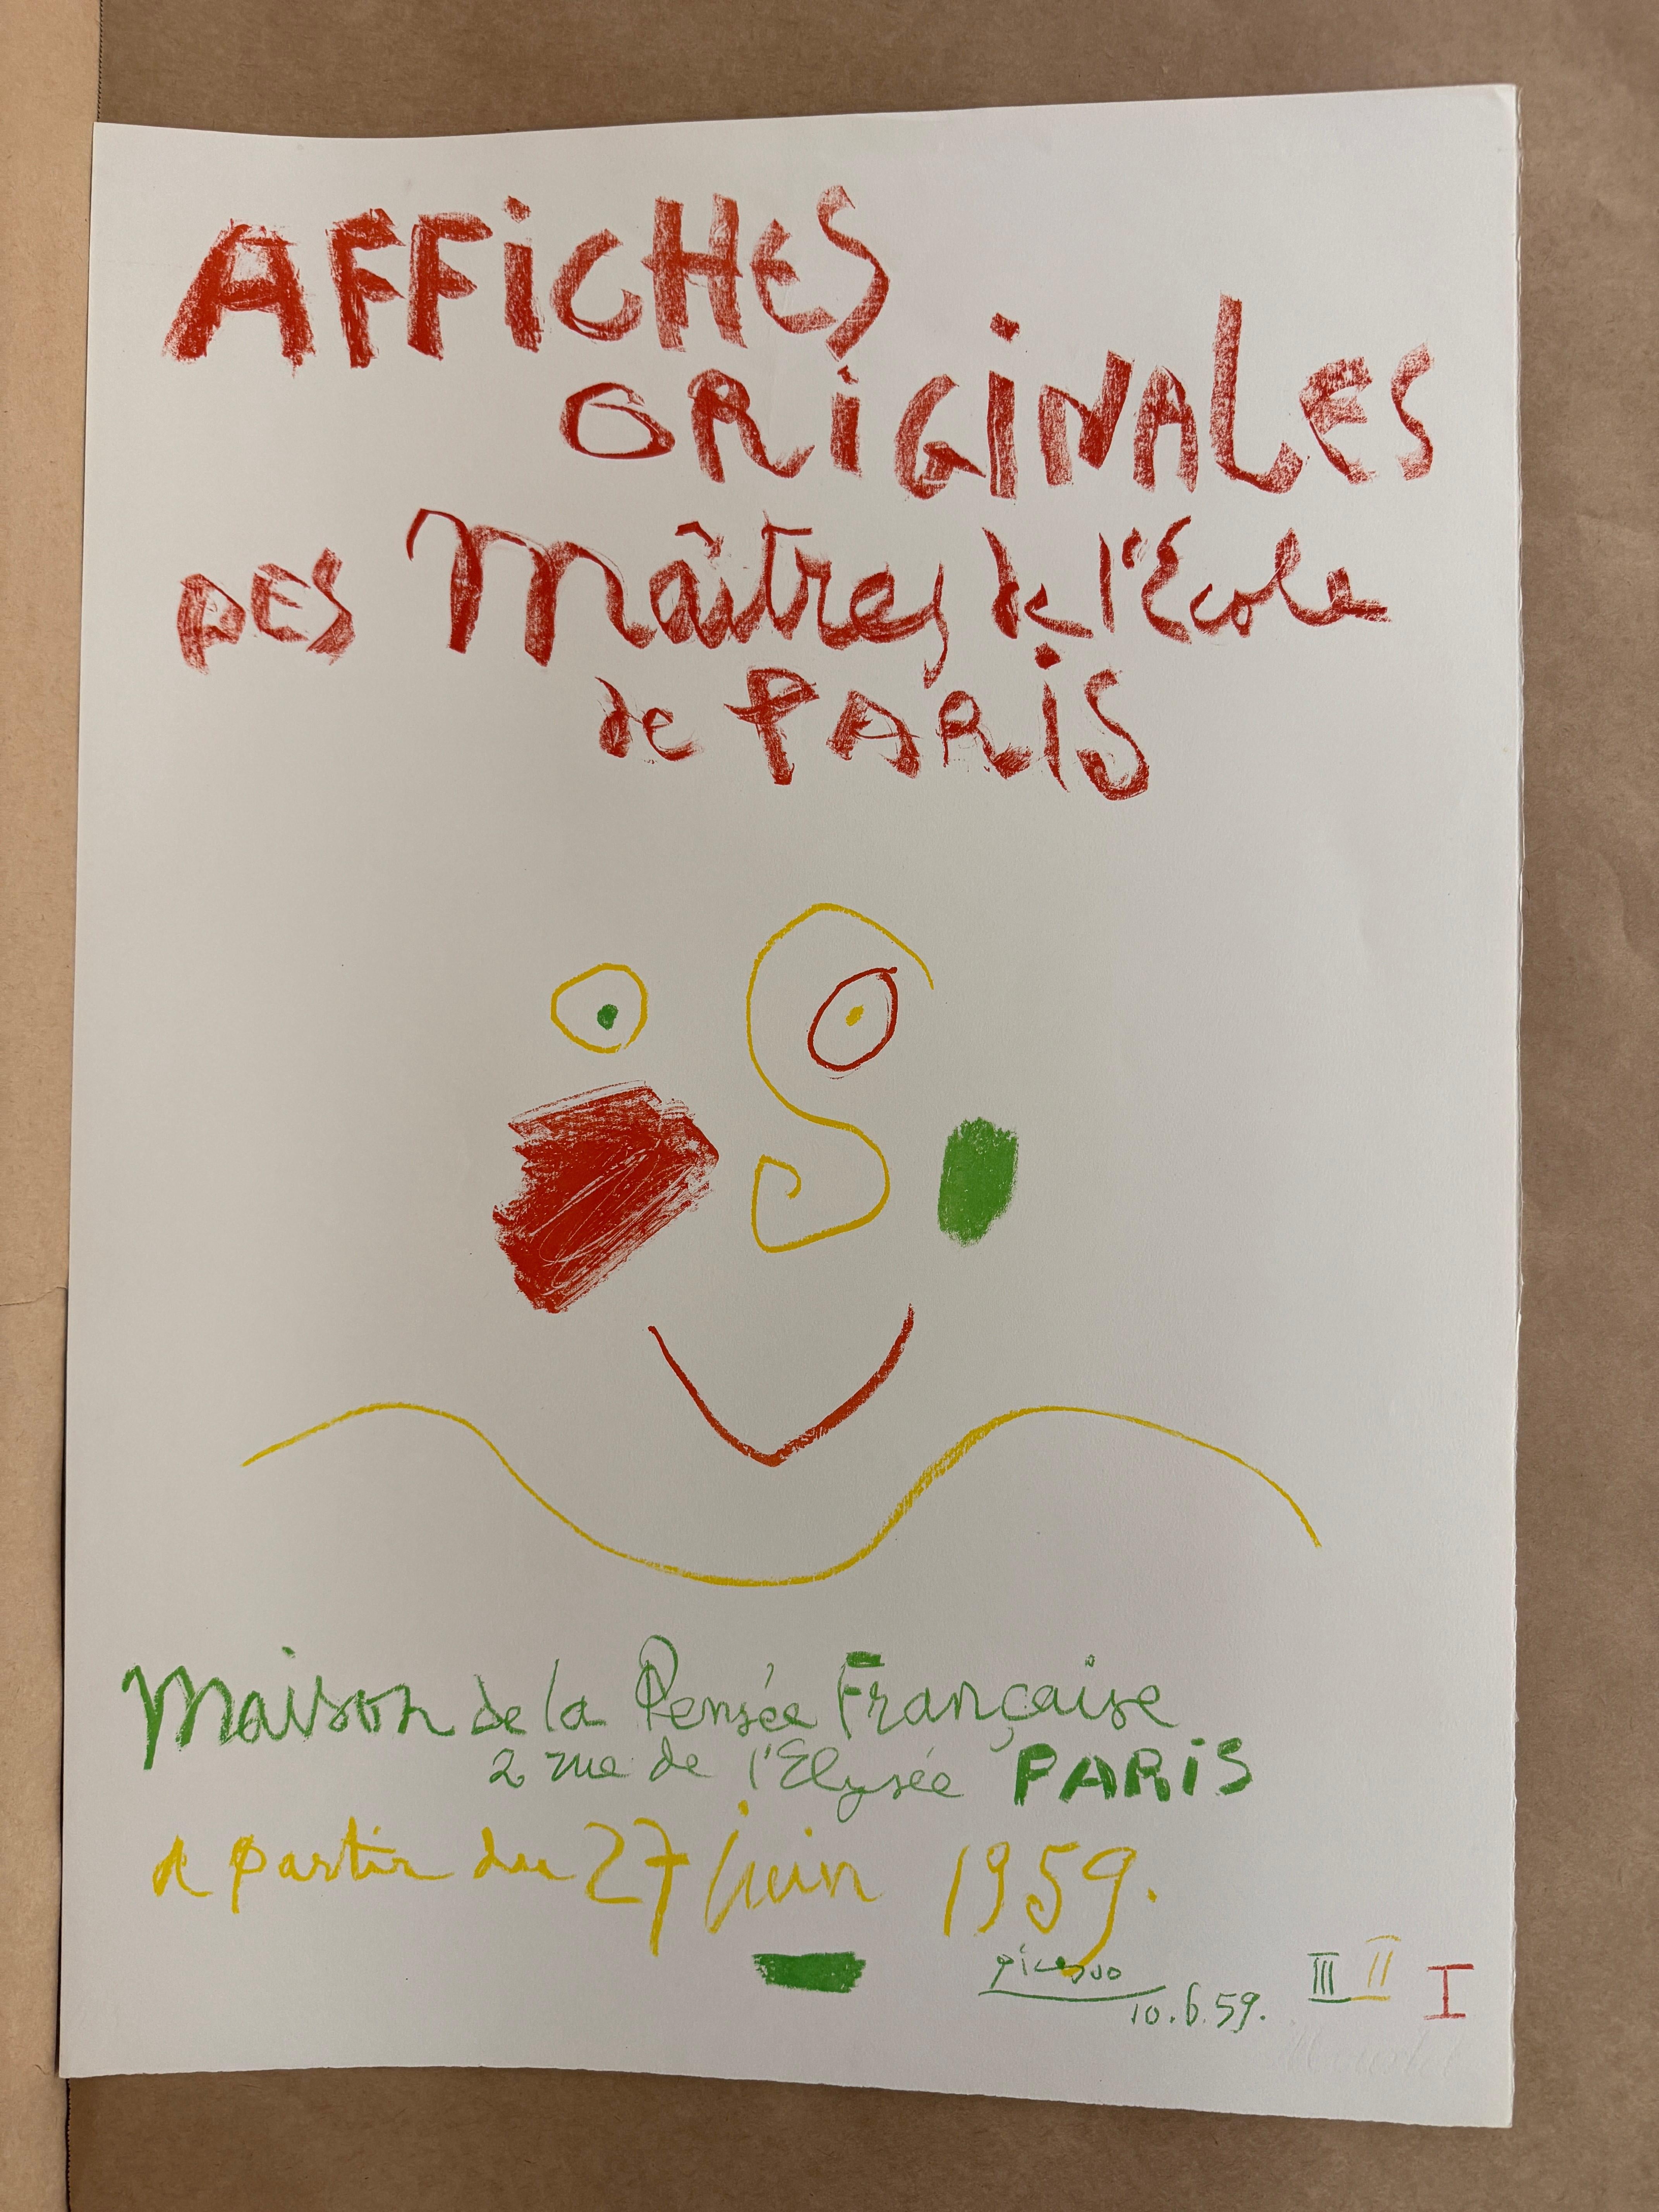 AFFiCHES
ORiGiNALES
DES Maîtres de l'Ecole
de PARiS
Maison de la Pensée Française
2 rue de l'Elysée PARiS
a partir du 27 juin 1959.
picasso
10.6.59.
III II I
Mourlot